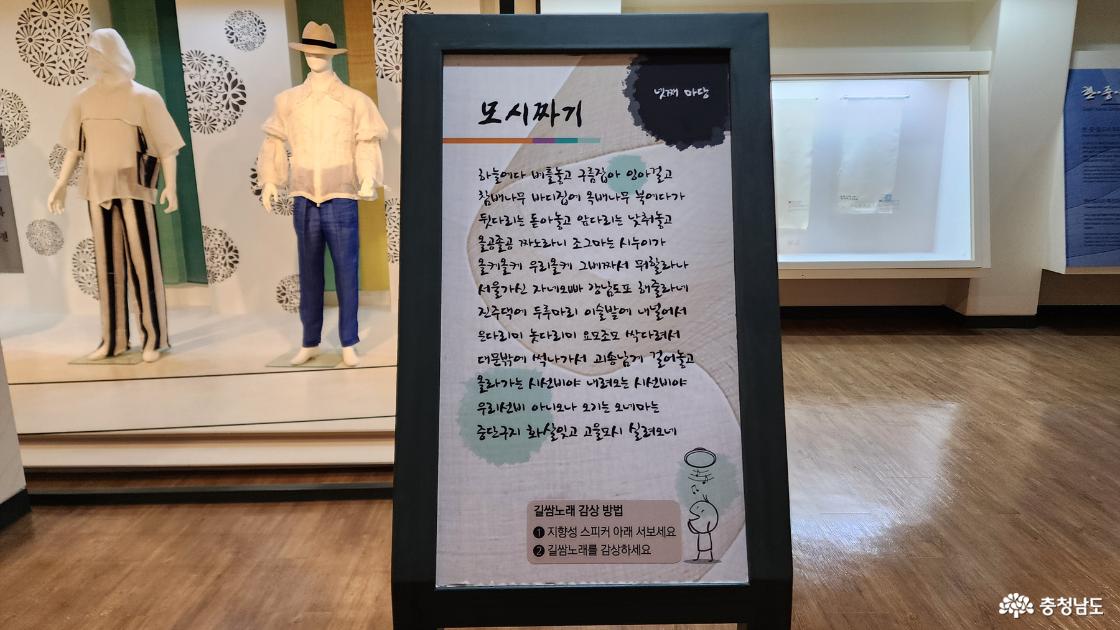 넷째 마당
모시짜기
하늘에다 베틀놓고 구름잡아 잉아걸고
참배나무 바디집에 옥배나무 북에다가
뒷다리는 돋아놓고 앞다리는 낮춰놓고
올공졸공 짜노라니 조그마는 시누이가
올케올케 우리올케 그베짜서 뭐할라나
서울가신 자네오빠 강남도포 해줄라네
진주댁에 두루마리 이슬밭에 내널어서
은다리미 놋다리미 요모조모 싹다려서
대문밖에 썩나가서 괴송남게 걸어놓고
올라가는 시선비야 내려오는 시선비야
우리선비 아니오나 오기는 오네마는
중단구지 화살잊고 고물포시 실려오네
길쌈노래 감상 방법
1 지향성 스피커 아래 서보세요
2 길쌈노래를 감상하세요
한·중·
충청남도